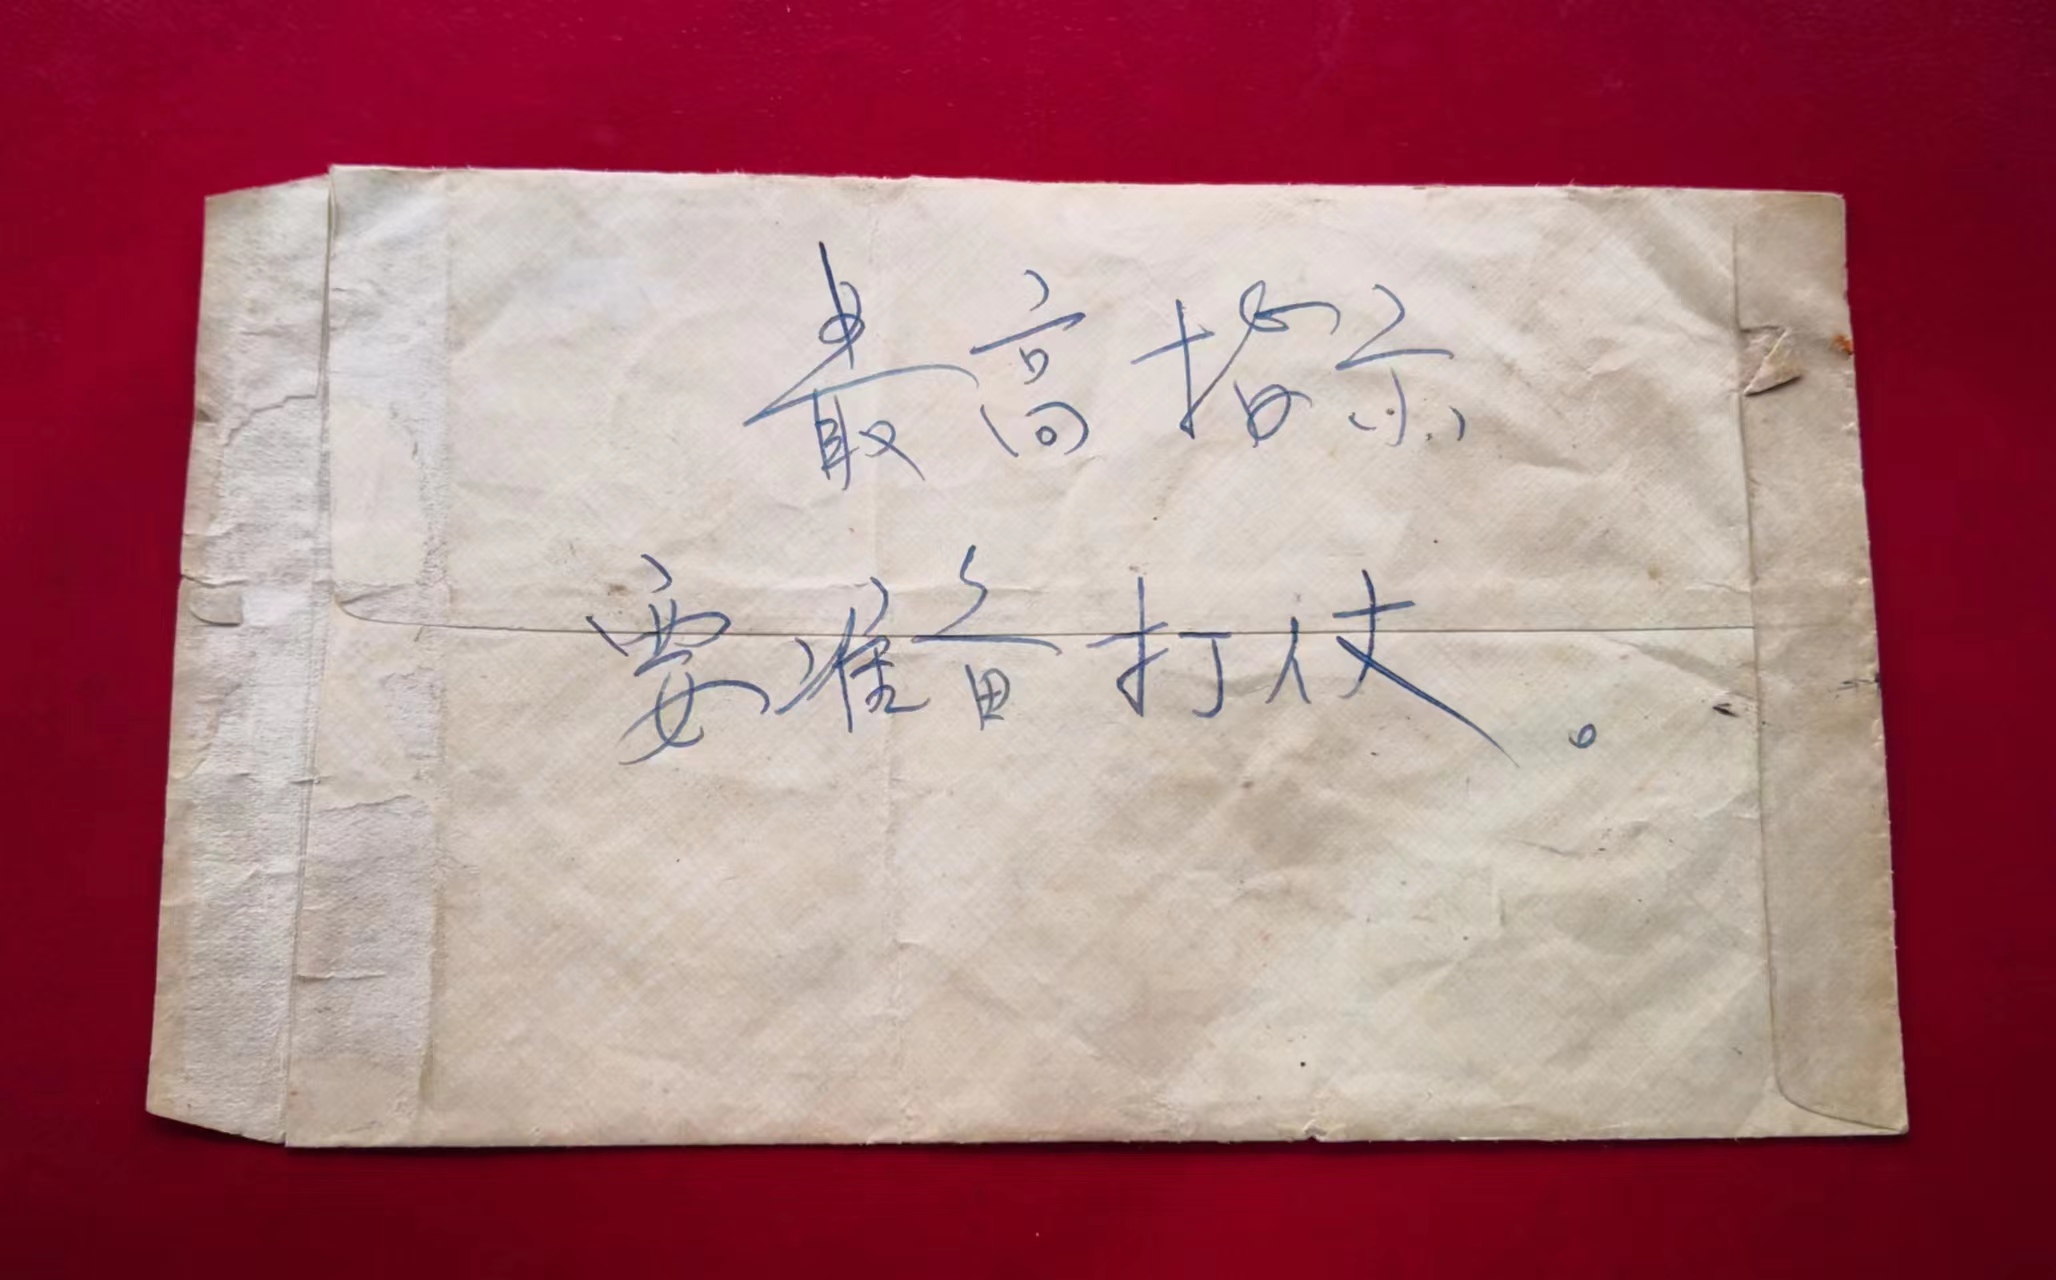 最高指示
要准备打仗。